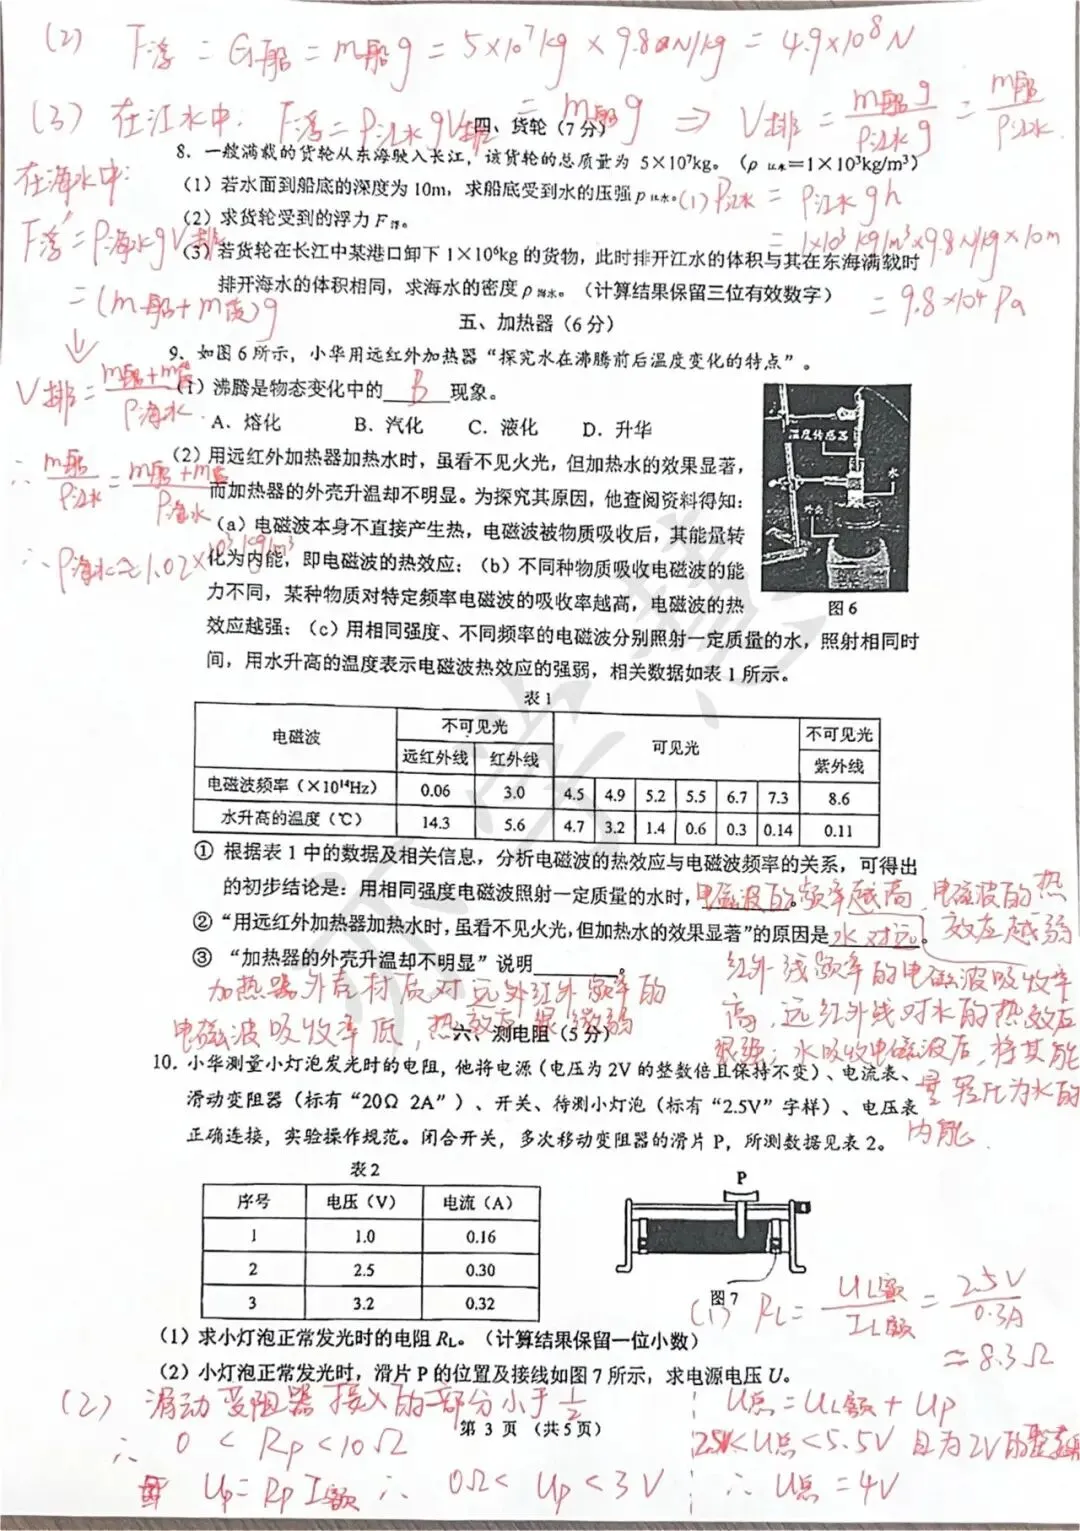 (2) F浮 = G船 = m船g = 5×10⁷kg × 9.8N/kg = 4.9×10⁸N
(3) 在江水中: F浮 = ρ江水gV排 = m船g ⇒ V排 = m船g/ρ江水g = m船/ρ江水
四、货轮(7分)
8. 一艘满载的货轮从东海驶入长江,该货轮的总质量为 5×10⁷kg。(ρ江水=1×10³kg/m³)
(1) 若水面到船底的深度为 10m,求船底受到水的压强 p江水。
(1) P江水 = ρ江水gh
= 1×10³kg/m³×9.8N/kg×10m
= 9.8×10⁴Pa
(2) 求货轮受到的浮力 F浮。
(3) 若货轮在长江中某港口卸下 1×10⁶kg 的货物,此时排开江水的体积与其在东海满载时
排开海水的体积相同,求海水的密度 ρ海水。(计算结果保留三位有效数字)
在海水中:
F浮′ = ρ海水gV排
= (m船+m货)g
↓
V排 = m船+m货/ρ海水
∴ m船/ρ江水 = m船+m货/ρ海水
∴ ρ海水≈1.02×10³kg/m³
五、加热器(6分)
9. 如图 6 所示,小华用远红外加热器“探究水在沸腾前后温度变化的特点”。
(1) 沸腾是物态变化中的 B 现象。
A. 熔化 B. 汽化 C. 液化 D. 升华
(2) 用远红外加热器加热水时,虽看不见火光,但加热水的效果显著,
而加热器的外壳升温却不明显。为探究其原因,他查阅资料得知:
(a)电磁波本身不直接产生热,电磁波被物质吸收后,其能量转
化为内能,即电磁波的热效应;(b)不同种物质吸收电磁波的能
力不同,某种物质对特定频率电磁波的吸收率越高,电磁波的热
效应越强;(c)用相同强度、不同频率的电磁波分别照射一定质量的水,照射相同时
间,用水升高的温度表示电磁波热效应的强弱,相关数据如表 1 所示。
温度传感器
水
外壳
图 6
表 1
电磁波 不可见光 可见光 不可见光
远红外线 红外线 紫外线
电磁波频率(×10¹⁴Hz) 0.06 3.0 4.5 4.9 5.2 5.5 6.7 7.3 8.6
水升高的温度(℃) 14.3 5.6 4.7 3.2 1.4 0.6 0.3 0.14 0.11
① 根据表 1 中的数据及相关信息,分析电磁波的热效应与电磁波频率的关系,可得出
的初步结论是:用相同强度电磁波照射一定质量的水时,电磁波的频率越高,电磁波的热
效应越弱
② “用远红外加热器加热水时,虽看不见火光,但加热水的效果显著”的原因是 水对远
红外线频率的电磁波吸收率
高,远红外线对水的热效应
很强;水吸收电磁波后,将其能
量转化为水的
内能.
③ “加热器的外壳升温却不明显”说明______。
加热器外壳材质对远外红外频率的
电磁波吸收率低,热效应很微弱
六、测电阻(5分)
10. 小华测量小灯泡发光时的电阻,他将电源(电压为 2V 的整数倍且保持不变)、电流表、
滑动变阻器(标有“20Ω 2A”)、开关、待测小灯泡(标有“2.5V”字样)、电压表
正确连接,实验操作规范。闭合开关,多次移动变阻器的滑片 P,所测数据见表 2。
表 2
序号 电压(V) 电流(A)
1 1.0 0.16
2 2.5 0.30
3 3.2 0.32
P
图 7
(1) RL = UL额/IL额 = 2.5V/0.3A
≈ 8.3Ω
(1) 求小灯泡正常发光时的电阻 RL。(计算结果保留一位小数)
(2) 小灯泡正常发光时,滑片 P 的位置及接线如图 7 所示,求电源电压 U。
(2) 滑动变阻器接入的部分小于1/2
∴ 0 < Rp < 10Ω
Up = Rp I额 ∴ 0Ω < Up < 3V
U总 = UL额 + Up
2.5V<U总<5.5V 且为2V的整数倍
∴ U总 = 4V
第 3 页 (共 5 页)